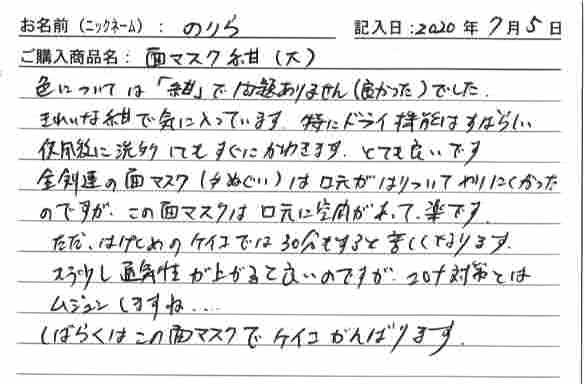 お名前（ニックネーム）： のりら 記入日：2020 年 7 月 5 日
ご購入商品名： 面マスク紺（大）
色については「紺」で問題ありません（良かった）でした．
きれいな紺で気に入っています．特にドライ機能はすばらしい
使用後に洗剤してもすぐにかわきます．とても良いです
全剣連の面マスク（手ぬぐい）は口元がはりついてやりにくかった
のですが、この面マスクは口元に空間があって、楽です．
ただ、はげしめのケイコでは30分もすると苦しくなります．
もう少し通気性が上がると良いのですが、コロナ対策とは
ムジュンしますね....
しばらくはこの面マスクでケイコがんばります．